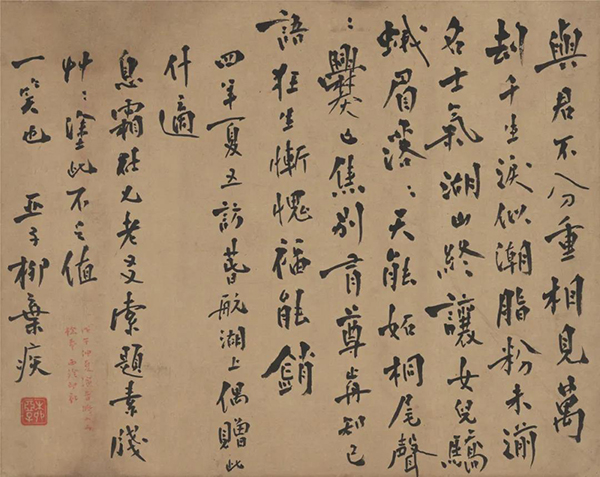 與君不分重相見萬
劫千生淚似潮脂粉未湔
名士氣湖山終讓女兒驕
蛾眉落〻天能妬桐尾聲
〻爨已焦別有尊前知己
語狂生慚愧福能銷
四年夏五訪春航湖上偶贈此
什適
息霜社兄老友索題素牋
艸〻塗此不足值
一笑也 亞子柳棄疾